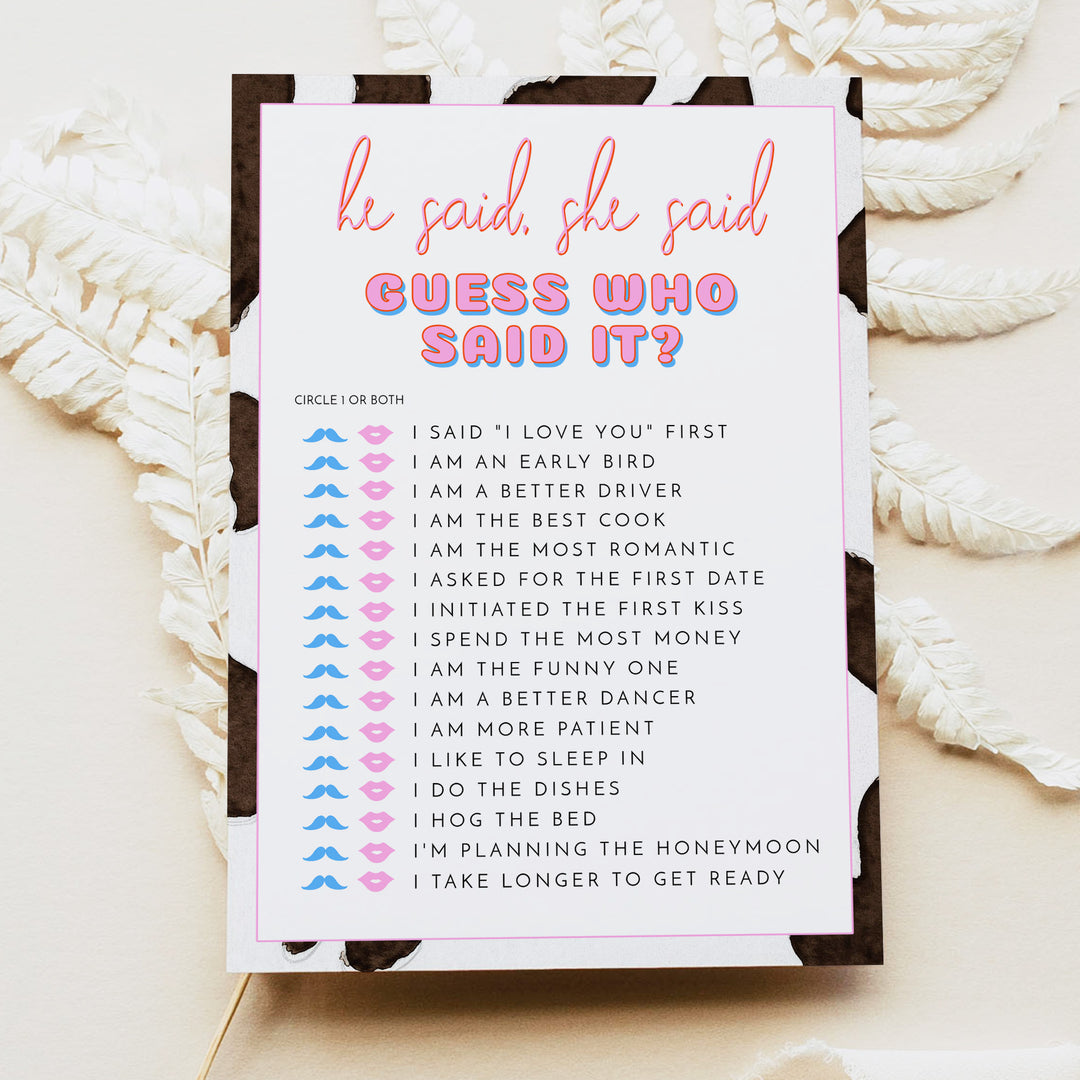 he said, she said
GUESS WHO
SAID IT?
CIRCLE 1 OR BOTH
I SAID "I LOVE YOU" FIRST
I AM AN EARLY BIRD
I AM A BETTER DRIVER
I AM THE BEST COOK
I AM THE MOST ROMANTIC
I ASKED FOR THE FIRST DATE
I INITIATED THE FIRST KISS
I SPEND THE MOST MONEY
I AM THE FUNNY ONE
I AM A BETTER DANCER
I AM MORE PATIENT
I LIKE TO SLEEP IN
I DO THE DISHES
I HOG THE BED
I'M PLANNING THE HONEYMOON
I TAKE LONGER TO GET READY